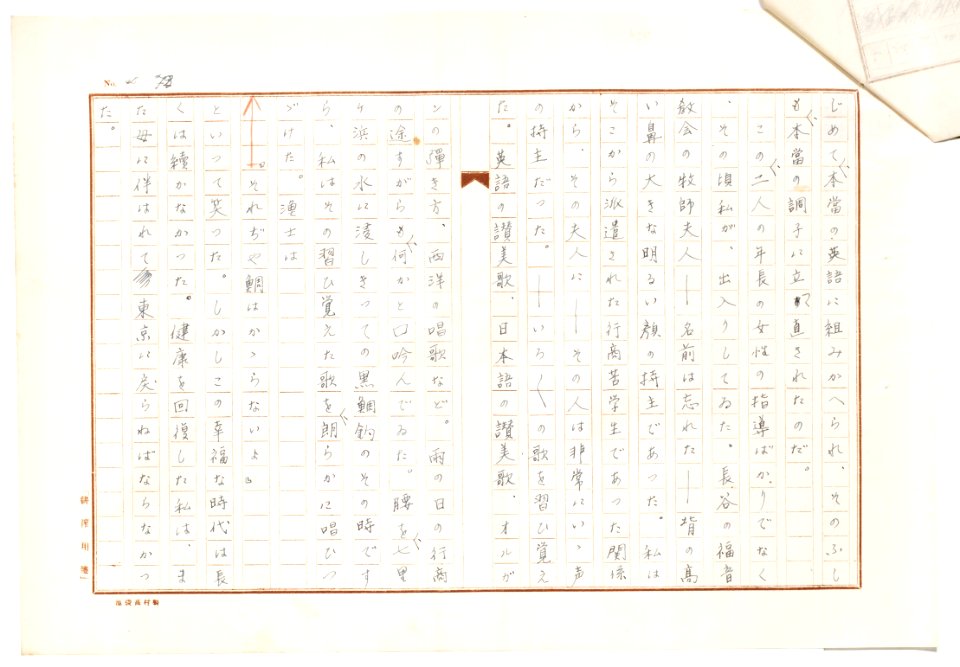 じめて本當の英語に組みかへられ、そのふし
も本當の調子に立て直されたのだ。
この二人の年長の女性の指導ばかりでなく
、その頃私が、出入りしてゐた。長谷の福音
教会の牧師夫人――名前は忘れた――背の高
い鼻の大きな明るい顔の持主であつた。私は
そこから派遣された行商苦学生であつた関係
から、その夫人に――その人は非常にいゝ声
の持主だつた。――いろ〳〵の歌を習ひ覚え
た。英語の讃美歌、日本語の讃美歌、オルガ
ンの彈き方、西洋の唱歌など。雨の日の行商
の途すがらも何かと口吟んでゐた。腰を七里
ヶ浜の水に浸しきつての黒鯛釣のその時です
ら、私はその習ひ覚えた歌を朗らかに唱ひつ
ゞけた。漁士は
「それぢや鯛はかゝらないよ」
といつて笑つた。しかしこの幸福な時代は長
くは續かなかつた。健康を回復した私は、ま
た母に伴はれて東京に戻らねばならなかつ
た。
No.